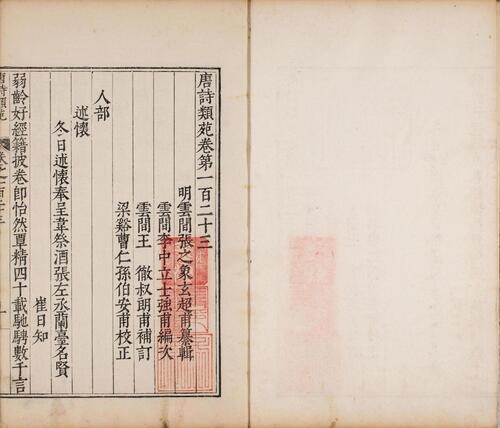 唐詩類苑卷第一百二十三
明雲間張之象玄超甫纂輯
雲間李中立士強甫編次
雲間王　徹叔朗甫補訂
梁谿曹仁孫伯安甫校正
人部
述懷
冬日述懷奉呈韋祭酒張左丞蘭臺名賢
崔日知
弱齡好經籍披卷即怡然覃精四十載馳騁數千言
唐詩類苑